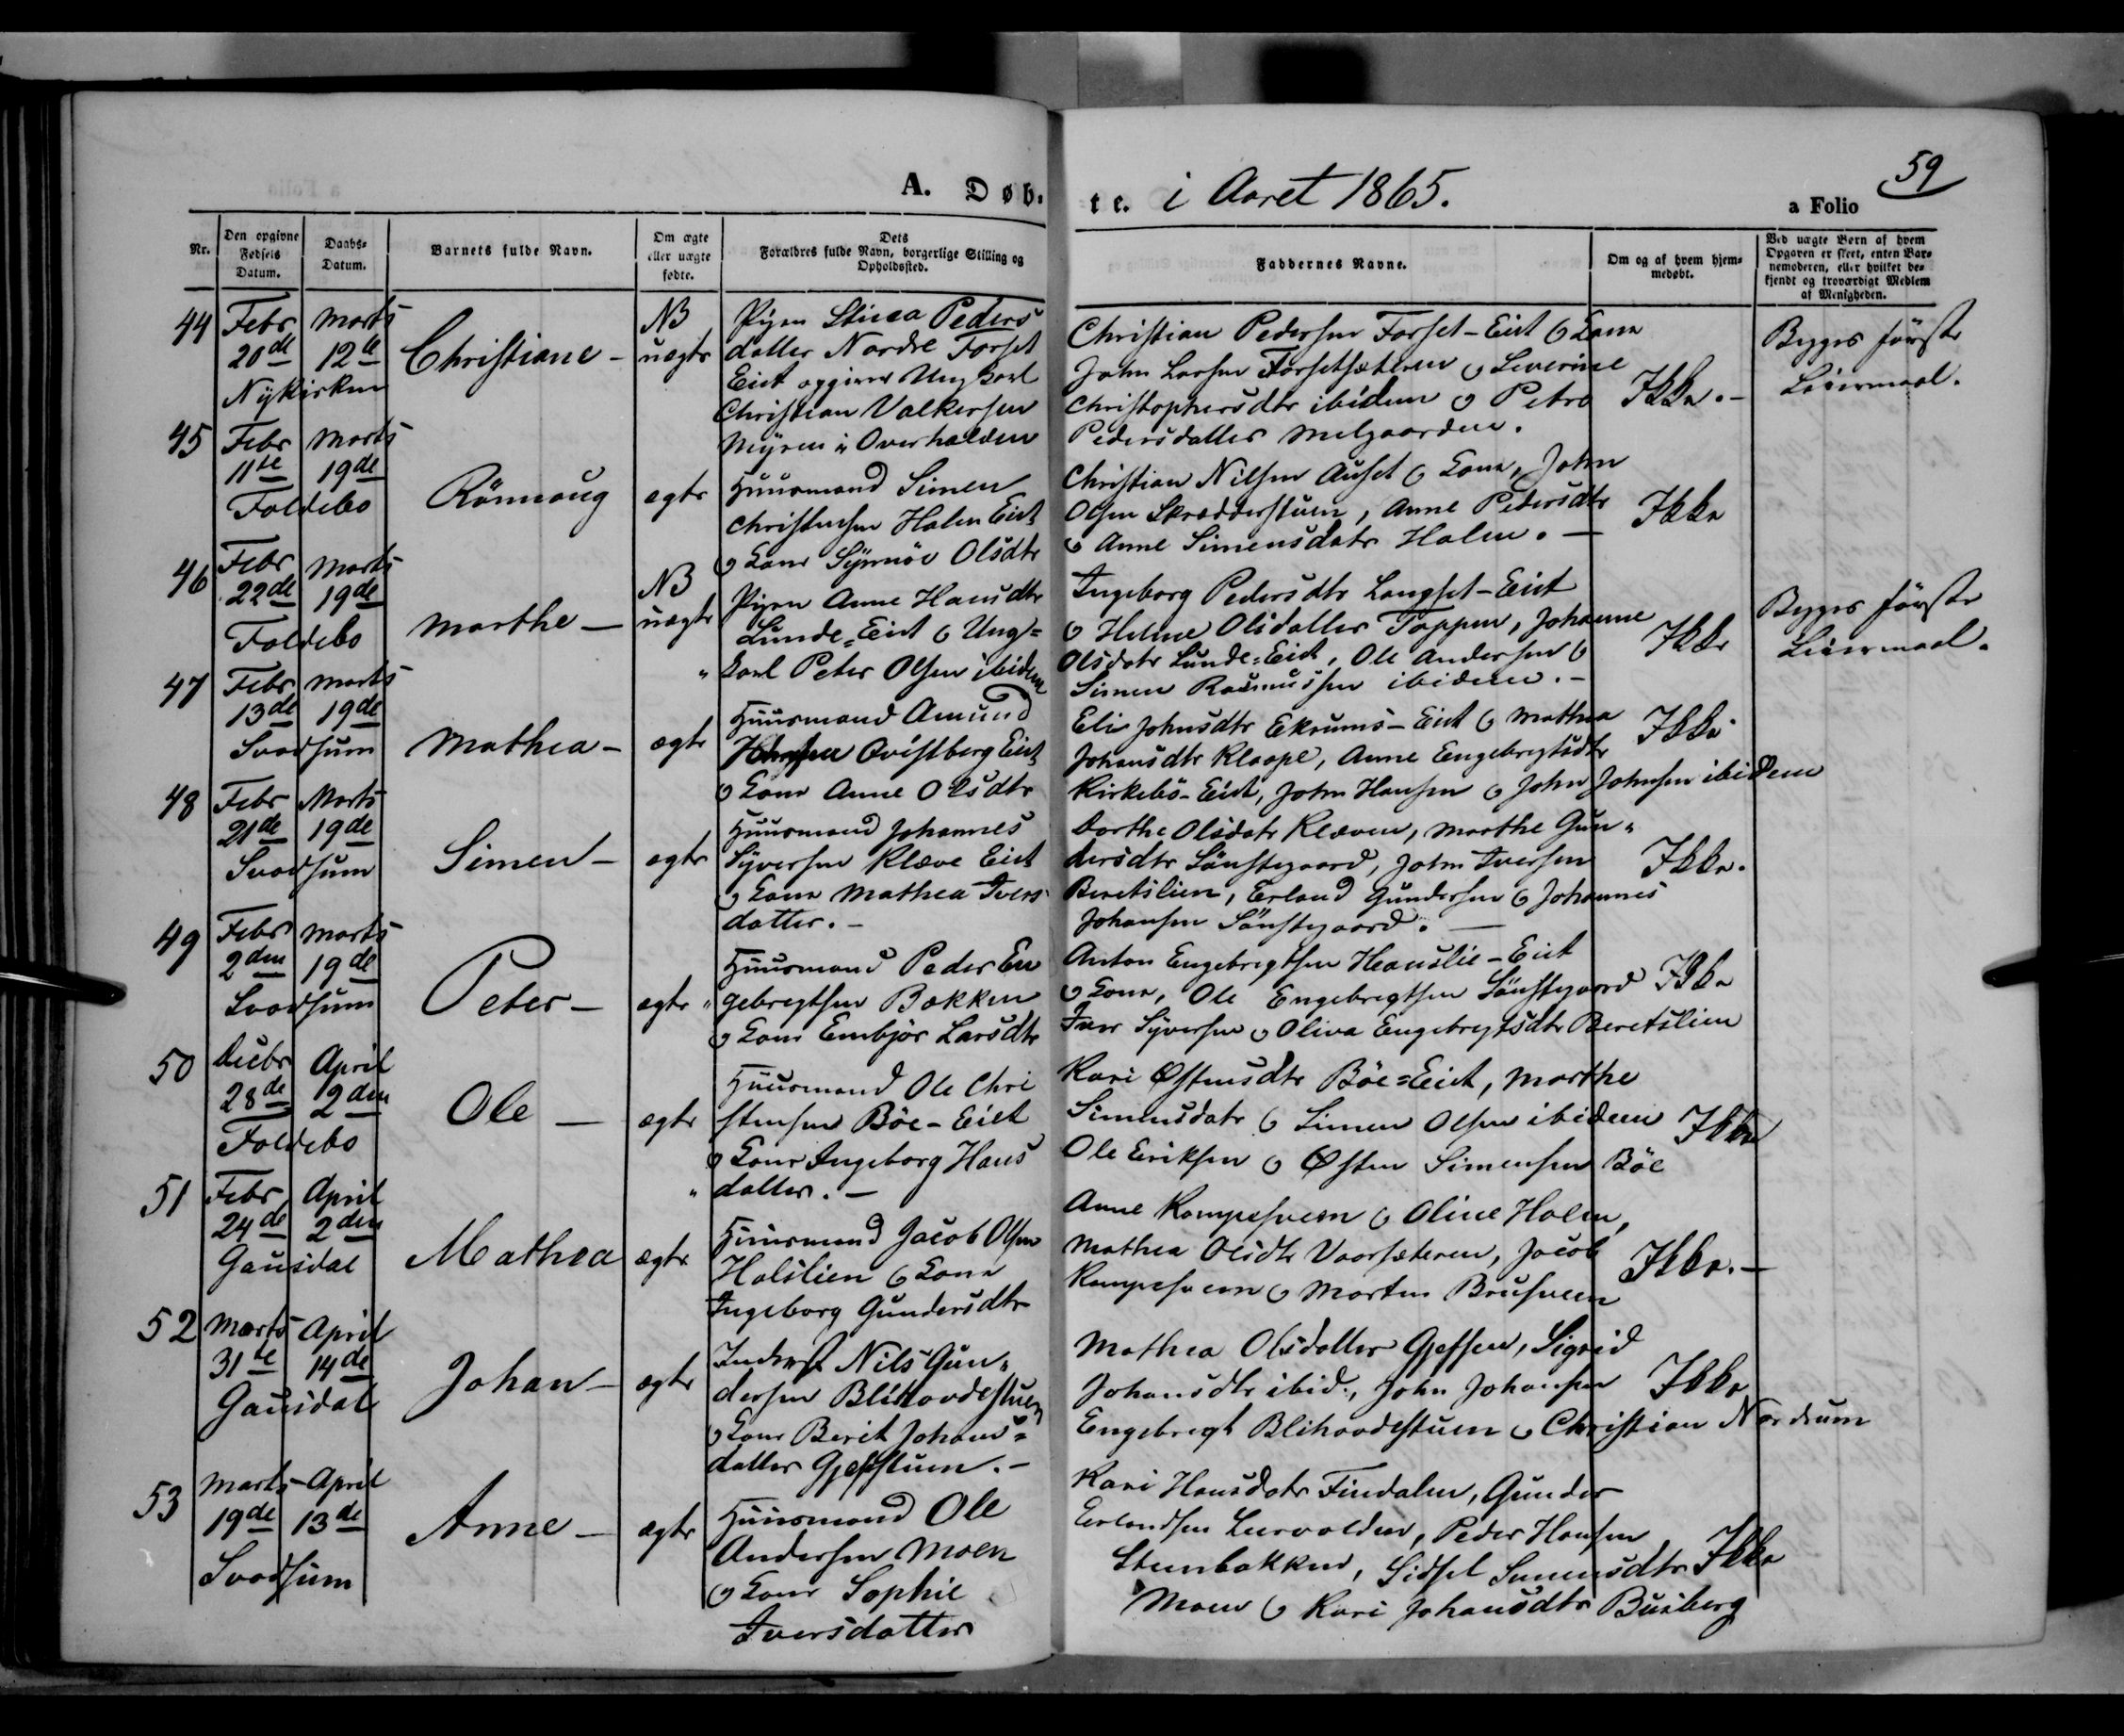 59
A. Døb-
te. i Aaret 1865.
a Folio
Nr.
Den opgivne Fødsels Datum.
Daabs-Datum.
Barnets fulde Navn.
Om ægte eller uægte fødte.
Dets Forældres fulde Navn, borgerlige Stilling og Opholdssted.
Faddernes Navne.
Om og af hvem hjemmedøbt.
Ved uægte Børn af hvem Opgaven er skeet, enten Barnemoderen, eller hvilket bekjendt og troværdigt Medlem af Menigheden.
44
Febr 20de
Marts 12te
Nykirken
Christiane -
NB uægte
Pigen Peders
datter Nordre Forset
Eiet opgiver Ungkarl
Christian Valkersen
Myren i Overhalden
Christian Pedersen Forset-Eiet & Kone
John Larsen Forsetsæteren & Severine
Christophersdtr ibidem & Petra
Pedersdatter Melgaarden.
Ikke. -
Begges første
Leiermaal.
45
Febr 11te
Marts 19de
Foldebo
Rönnaug
ægte
Huusmand Simen
Christensen Holen Eiet
& Kone Synnöv Olsdtr
Christian Nilsen Auset & Kone, John
Olsen Skrædderstuen, Anne Pedersdtr
& Anne Simensdatr Holen. -
Ikke
46
Febr 22de
Marts 19de
Foldebo
Marthe -
NB uægte
Pigen Anne Hansdtr
Lunde-Eiet & Ung-
karl Peter Olsen ibidem
Ingeborg Pedersdtr Langset-Eiet
& Helene Olsdatter Toppen, Johanne
Olsdatr Lunde-Eiet, Ole Andersen &
Simen Rasmussen ibidem. -
Ikke
Begges første
Leiermaal.
47
Febr 13de
Marts 19de
Svadsum
Mathea -
ægte
Huusmand Amund
Qvistberg Eiet
& Kone Anne Olsdtr
Eli Johnsdtr Ekrums-Eiet & Mathea
Johansdtr Klaape, Anne Engebrigtsdtr
Kirkebö-Eiet, John Hansen & John Johnsen ibidem
Ikke
48
Febr 21de
Marts 19de
Svadsum
Simen -
ægte
Huusmand Johannes
Syversen Kleve Eiet
& Kone Mathea Ivers-
datter. -
Dorthe Olsdatr Kleven, Marthe Gun-
dersdtr Sönstegaard, John Iversen
Beretslien, Erland Gundersen & Johannes
Johansen Sönstegaard. -
Ikke.
49
Febr 2den
Marts 19de
Svadsum
Peter -
ægte
Huusmand Peder En
gebregtsen Bakken
& Kone Embjör Larsdtr
Anton Engebregtsen Heauslie-Eiet
& Kone, Ole Engebregtsen Sönstegaard
Iver Syversen & Oliva Engebregtsdtr Beretslien
Ikke
50
Decbr 28de
April 2den
Foldebo
Ole -
ægte
Huusmand Ole Chri
stensen Böe-Eiet
& Kone Ingeborg Hans
datter. -
Kari Østensdtr Böe-Eiet, Marthe
Simensdatr & Simen Olsen ibidem
Ole Eriksen & Østen Simensen Böe
Ikke
51
Febr 24de
April 2den
Gausdal
Mathea
ægte
Huusmand Jacob Olsen
Holslien & Kone
Ingeborg Gundersdtr
Anne Kampesveen & Oline Holen,
Mathea Olsdtr Vaarsæteren, Jacob
Kampesveen & Morten Brusveen
Ikke. -
52
Marts 31te
April 14de
Gausdal
Johan -
ægte
Inderst Nils Gun-
dersen Blihovdestuen
& Kone Berit Johans-
datter -
Mathea Olsdatter, Sigrid
Johansdtr ibid., John Johansen
Engebregt Blihovdestuen & Christian Nordrum
Ikke
53
Marts 19de
April 13de
Svadsum
Anne -
ægte
Huusmand Ole
Andersen Moen
& Kone Sophie
Iversdatter
Kari Hansdatr Findalen, Gunder
Erlandsen, Peder Hansen
Steenbakken, Sidsel Simensdtr
Moen & Kari Johansdtr Busberg
Ikke